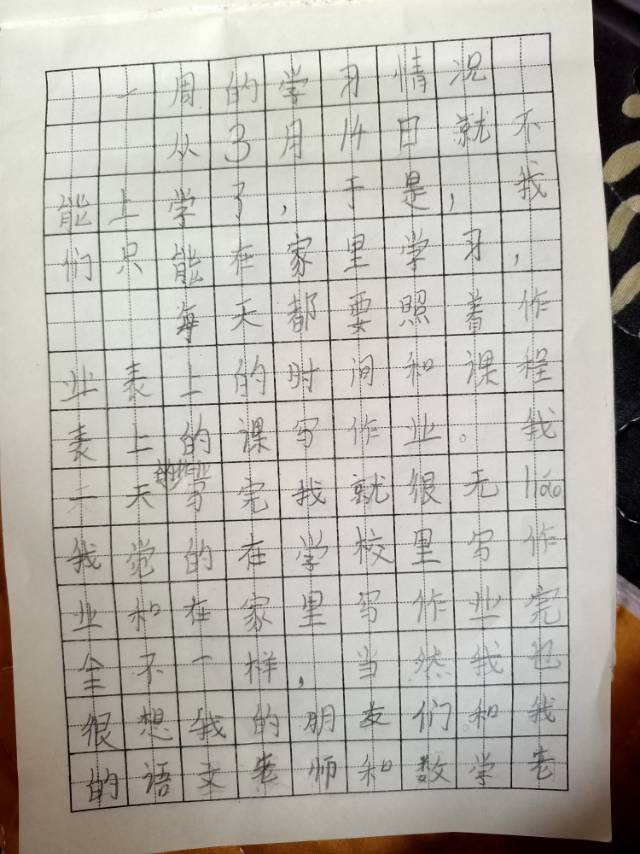 一周的学习情况
从3月14日就不
能上学了，于是，我
们只能在家里学习，
每天都要照着作
业表上的时间和课程
表上的课写作业。我
一天的作业写完我就很无liáo
我觉的在学校里写作
业和在家里写作业完
全不一样，当然我也
很想我的朋友们和我
的语文老师和数学老